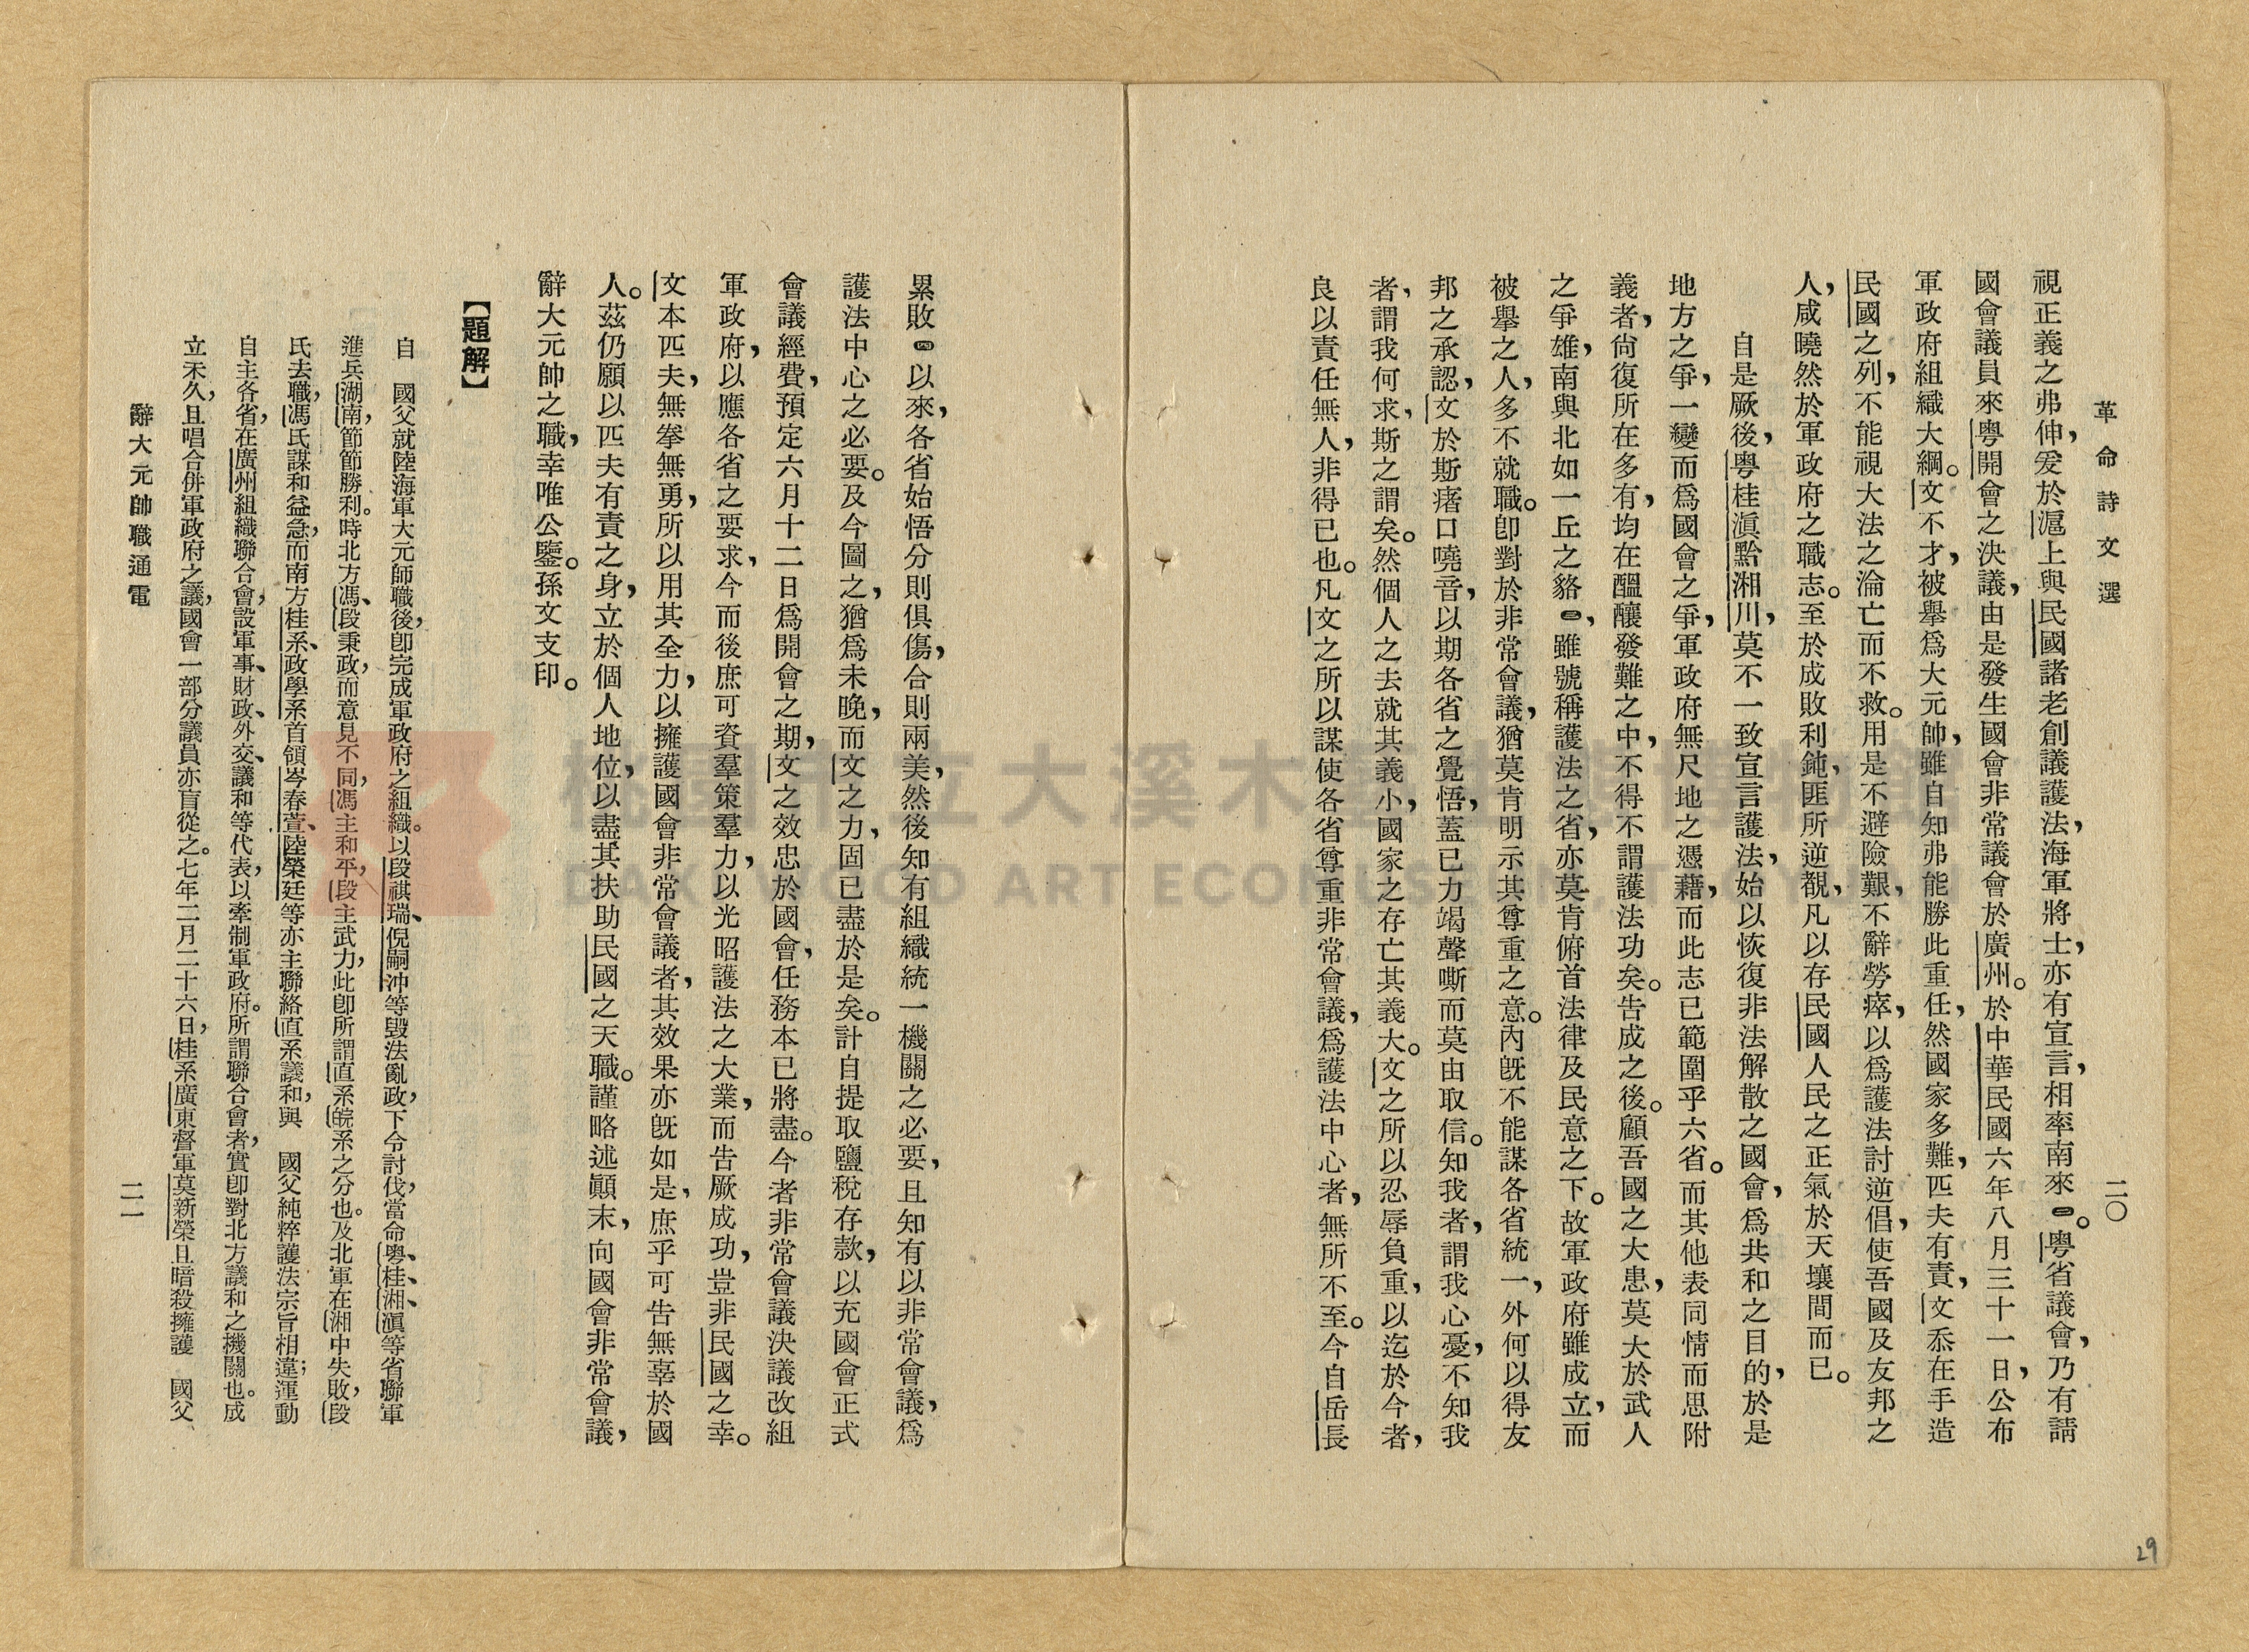 革命詩文選
二〇
視正義之弗伸，爰於滬上與民國諸老創議護法，海軍將士，亦有宣言，相率南來㊂。粵省議會，乃有請
國會議員來粵開會之決議，由是發生國會非常議會於廣州。於中華民國六年八月三十一日，公布
軍政府組織大綱。文不才，被舉爲大元帥，雖自知弗能勝此重任，然國家多難，匹夫有責，文忝在手造
民國之列，不能視大法之淪亡而不救。用是不避險艱，不辭勞瘁，以爲護法討逆倡，使吾國及友邦之
人，咸曉然於軍政府之職志。至於成敗利鈍，匪所逆覩，凡以存民國人民之正氣於天壤間而已。
自是厥後，粵桂滇黔湘川，莫不一致宣言護法，始以恢復非法解散之國會，爲共和之目的，於是
地方之爭，一變而爲國會之爭，軍政府無尺地之憑藉，而此志已範圍乎六省。而其他表同情而思附
義者，尙復所在多有，均在醞釀發難之中，不得不謂護法功矣。告成之後。顧吾國之大患，莫大於武人
之爭雄，南與北如一丘之貉㊂，雖號稱護法之省，亦莫肯俯首法律及民意之下。故軍政府雖成立，而
被舉之人，多不就職。卽對於非常會議，猶莫肯明示其尊重之意。內旣不能謀各省統一，外何以得友
邦之承認，文於斯瘏口嘵音，以期各省之覺悟，蓋已力竭聲嘶而莫由取信。知我者，謂我心憂，不知我
者，謂我何求，斯之謂矣。然個人之去就其義小，國家之存亡其義大。文之所以忍辱負重，以迄於今者，
良以責任無人，非得已也。凡文之所以謀使各省尊重非常會議，爲護法中心者，無所不至。今自岳長
累敗㊃以來，各省始悟分則俱傷，合則兩美，然後知有組織統一機關之必要，且知有以非常會議，爲
護法中心之必要。及今圖之，猶爲未晚，而文之力，固已盡於是矣。計自提取鹽稅存款，以充國會正式
會議經費，預定六月十二日爲開會之期，文之效忠於國會，任務本已將盡。今者非常會議決議改組
軍政府，以應各省之要求，今而後庶可資羣策羣力，以光昭護法之大業，而告厥成功，豈非民國之幸。
文本匹夫，無拳無勇，所以用其全力，以擁護國會非常會議者，其效果亦旣如是，庶乎可告無辜於國
人。茲仍願以匹夫有責之身，立於個人地位，以盡其扶助民國之天職。謹略述顚末，向國會非常會議，
辭大元帥之職，幸唯公鑒。孫文支印。
【題解】
自　國父就陸海軍大元帥職後，卽完成軍政府之組織。以段祺瑞、倪嗣沖等毀法亂政，下令討伐，當命粵、桂、湘、滇等省聯軍
進兵湖南，節節勝利。時北方馮、段秉政，而意見不同，馮主和平，段主武力，此卽所謂直系皖系之分也。及北軍在湘中失敗，段
氏去職，馮氏謀和益急，而南方桂系、政學系首領岑春萱、陸榮廷等亦主聯絡直系議和，與　國父純粹護法宗旨相違；運動
自主各省，在廣州組織聯合會，設軍事、財政、外交、議和等代表，以牽制軍政府。所謂聯合會者，實卽對北方議和之機關也。成
立未久，且唱合併軍政府之議，國會一部分議員亦盲從之。七年二月二十六日，桂系廣東督軍莫新榮且暗殺擁護　國父、
辭大元帥職通電
二一
29
桃園市立大溪木藝生態博物館
DAXI WOOD ART ECOMUSEUM, TAOYUAN